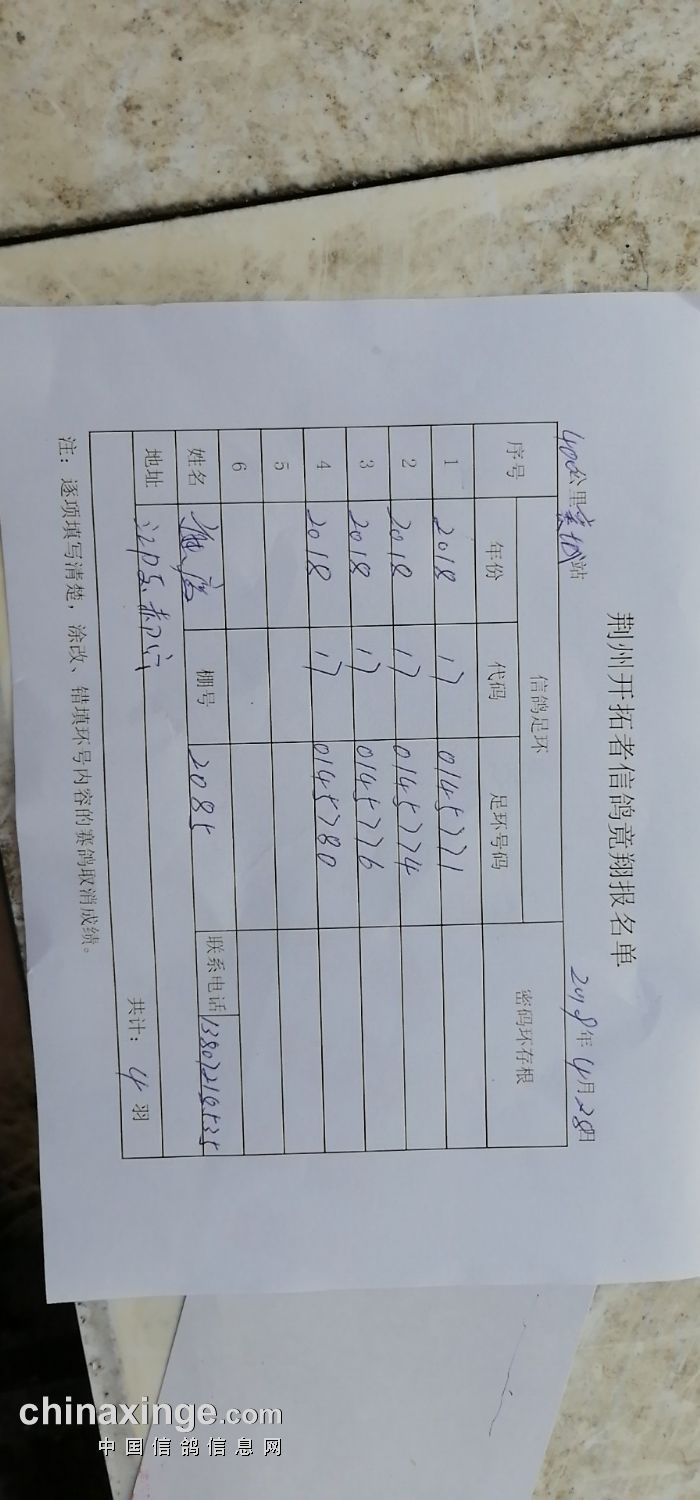 荆州开拓者信鸽竞翔报名单
400公里 站 2019年4月28日
序号 信鸽足环 密码环存根
年份 代码 足环号码
1 2018 17 0145771
2 2018 17 0145774
3 2018 17 0145776
4 2018 17 0145780
5
6
姓名 棚号 2085 联系电话
地址
共计: 4 羽
注: 逐项填写清楚, 涂改、错填环号内容的赛鸽取消成绩。
chinaxinge.com
中国信鸽信息网